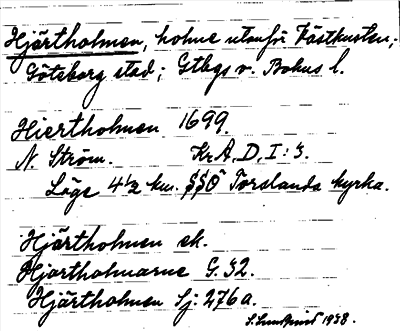 Hjärtholmen, holme utanför Västkusten;
Göteborg stad; Gtbgs o. Bohus l.
Hiertholmen 1699.
N. Ström. Kr.A, D, I:3.
Läge 4 1/2 km. SSO Torslanda kyrka.
Hjärtholmen ek.
Hjärtholmarne G. 32.
Hjärtholmen Sj. 276a.
S. Lundqvist 1938.